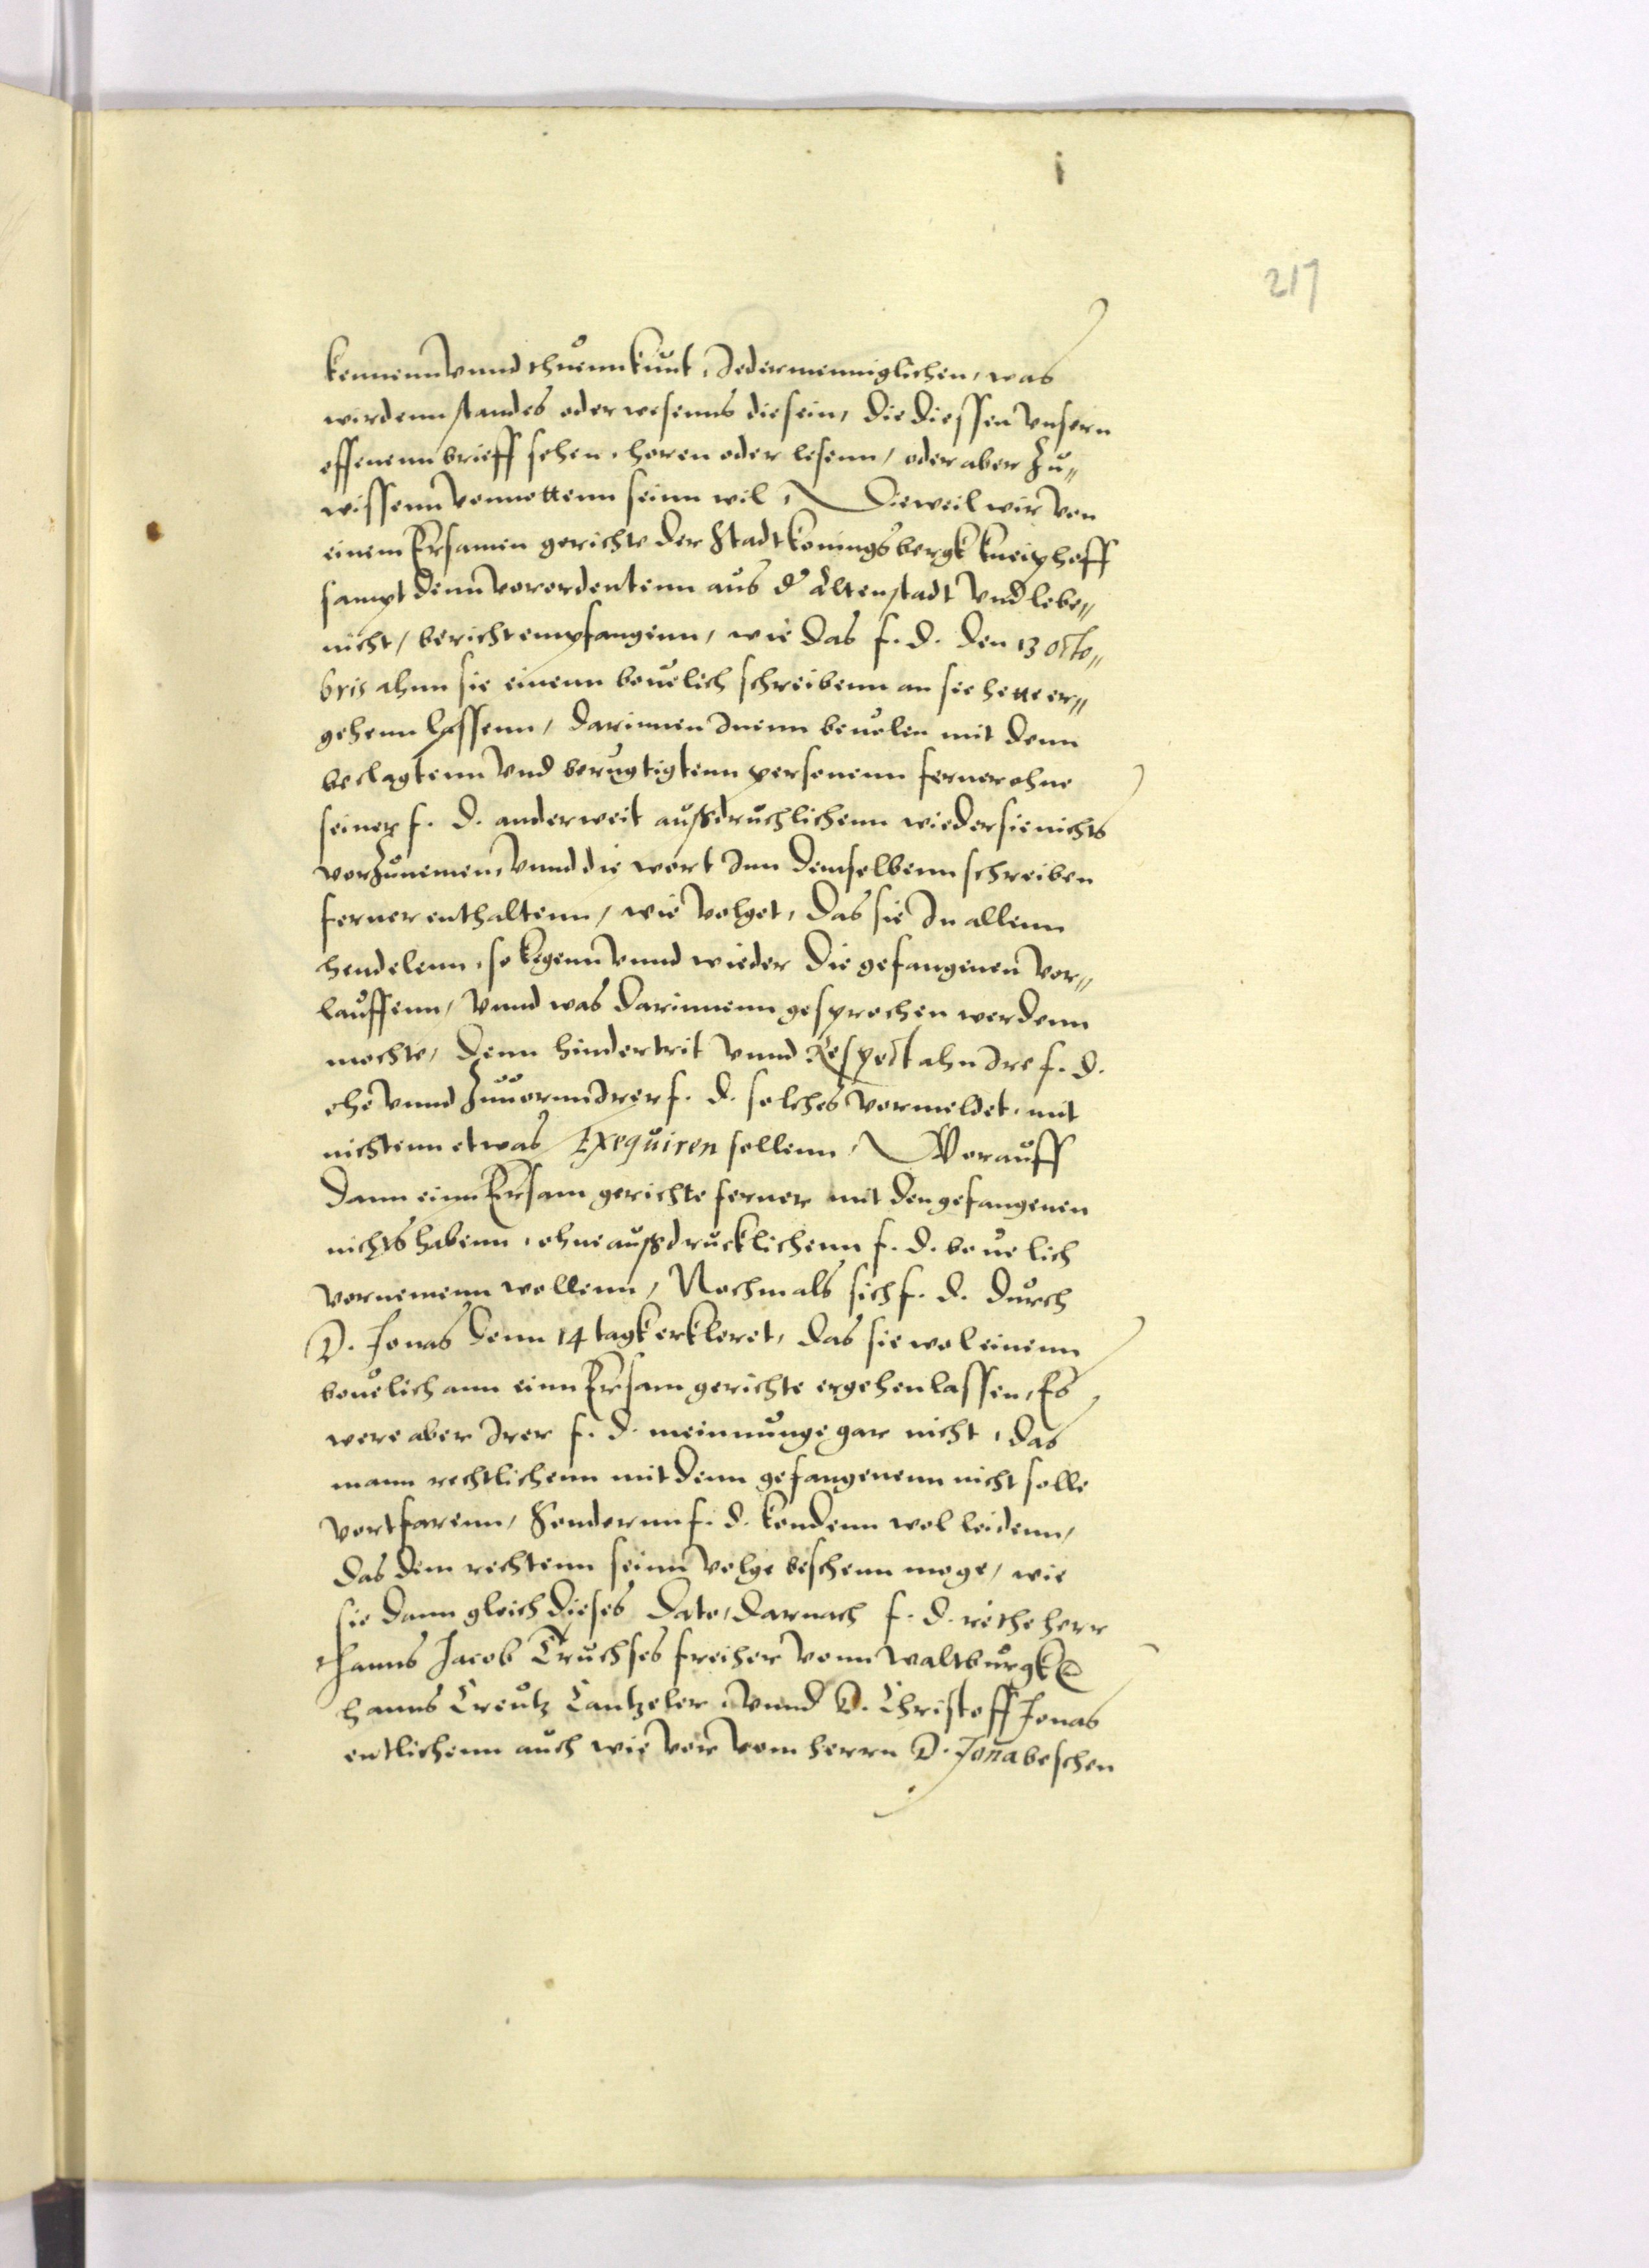 217
kennenn vnnd thuenn kunt, Jedermenniglichen, was
wirdenn standes oder wesenns die sein, die diessen vnsern
offenenn brieff sehen, horen oder lesenn, oder aber zu„
wissenn vonnottenn seinn wil, Dieweil wir von
einem Ersamen gerichte der Stadt Konnigsbergk Kneiphoff
sampt denn vorordentenn aus d' Altenstadt vnd lebe„
nicht, bericht empfangenn, wie das f. d. den 13 octo„
bris ahnn sie einenn beuelich schreibenn an sie hette er„
gehenn lassenn, darinnen Jnenn beuolen mit denn
beclagtenn vnd berugtigtenn personenn ferner ohne
seiner f. d. anderweit außdruchlichenn wieder sie nichts
vorzunemen, vnnd die wort Jnn demselbenn schreiben
ferner enthaltenn, wie volget, das sie Jn allenn
hendelenn, so kegenn vnnd wieder die gefangenen vor„
lauffenn, vnnd was darinnenn gesprochen werdenn
mochte, denn hindertrit vnnd Respect ahn Jre f. d.
ehe vnnd zuuorn Jrer f. d. solches vormeldet, mit
nichtenn etwas Exequiren sollenn, Worauff
dann einn Ersam gerichte ferner mit den gefangenen
nichts habenn, ohne außdrucklichenn f. d. beuelich
vornemenn wollenn, Nochmals sich f. d. durch
D. Jonas denn 14 tagk erkleret, das sie wol einenn
beuelich ann einn Ersam gerichte ergehen lassen, Es
were aber Jrer f. d. meinnunge gar nicht, das
mann rechtlichenn mit denn gefangenenn nicht solle
vortfarenn, Sondernn f. d. kondenn wol leidenn,
das dem rechtenn seinn volge beschenn moge, wie
sie dann gleich dieses Dato, darnach f. d. rethe herr
Hanns Jacob Truchses freiher vonn Waltburgk
Hanns Creutz Cantzeler, vnnd D. Christoff Jonas
entlichenn auch wie vor vom herrn D. Jona beschen